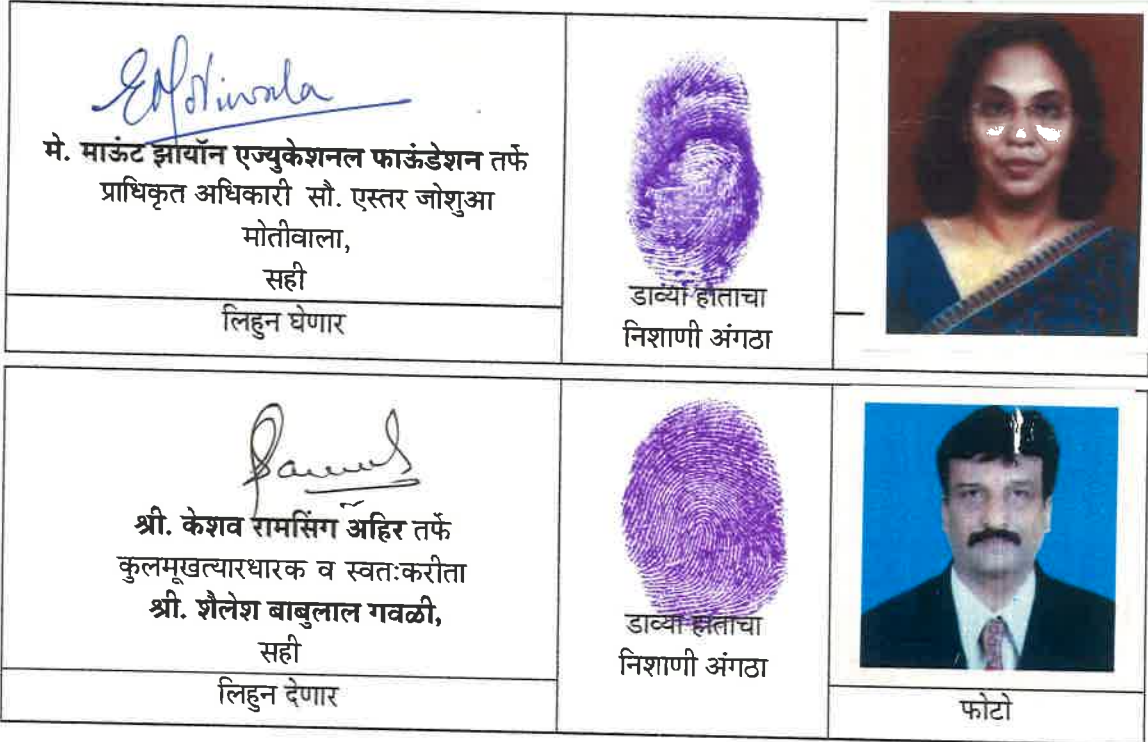 EMotiwala
मे. माऊंट झायॉन एज्युकेशनल फाऊंडेशन तर्फे
प्राधिकृत अधिकारी सौ. एस्तर जोशुआ
मोतीवाला,
सही
लिहुन घेणार
डाव्या हाताचा
निशाणी अंगठा
श्री. केशव रामसिंग अहिर तर्फे
कुलमूखत्यारधारक व स्वतःकरीता
श्री. शैलेश बाबुलाल गवळी,
सही
लिहुन देणार
डाव्या हाताचा
निशाणी अंगठा
फोटो